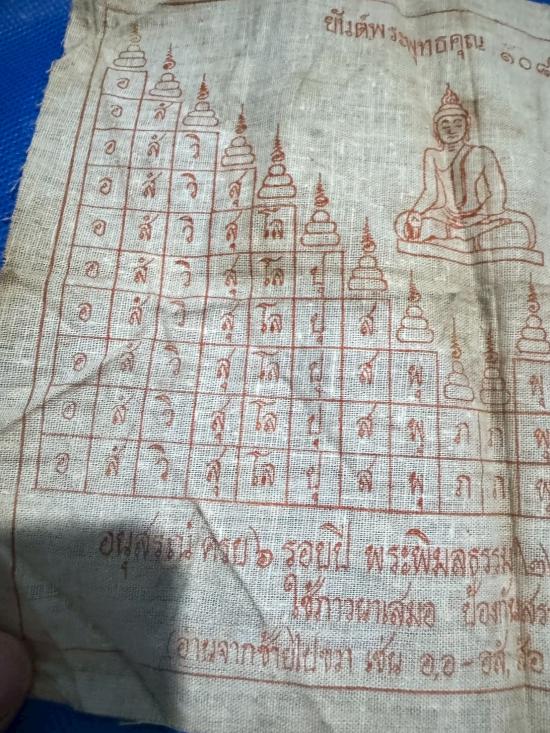 ยันต์พระพุทธคุณ ๑๐๘
อ
อ สํ
อ สํ วิ
อ สํ วิ สุ
อ สํ วิ สุ โล
อ สํ วิ สุ โล ปุ
อ สํ วิ สุ โล ปุ ส
อ สํ วิ สุ โล ปุ ส พุ พุ
อ สํ วิ สุ โล ปุ ส พุ ภ ภ พุ
อ สํ วิ สุ โล ปุ ส พุ ภ ภ พุ
อนุสรณ์ ครบ ๖ รอบปี พระพิมลธรรม
ใช้ภาวนาเสมอ ป้องกัน
(อ่านจากซ้ายไปขวา เช่น อ,อ - อสํ,